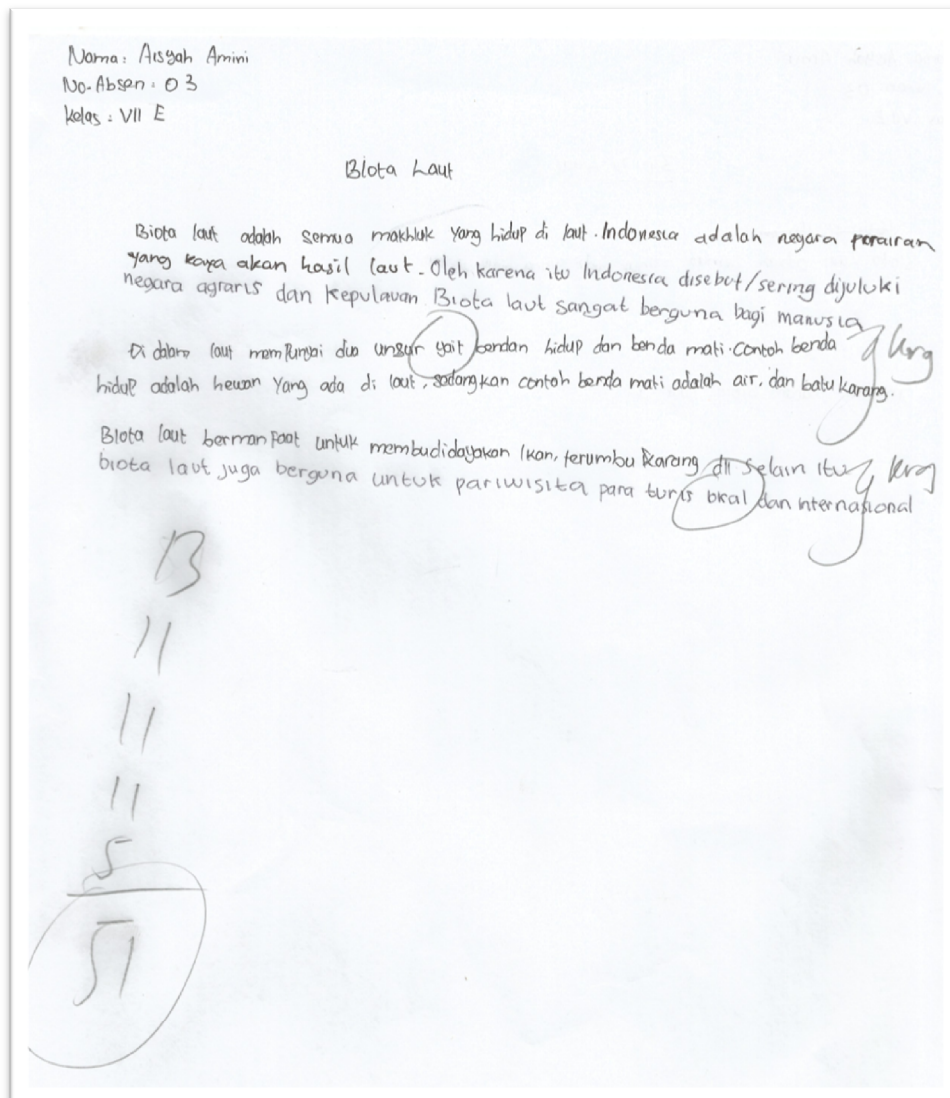 Nama: Aisyah Amini
No. Absen: 03
Kelas: VII E
Biota Laut
Biota laut adalah semua makhluk yang hidup di laut. Indonesia adalah negara perairan
yang kaya akan hasil laut. Oleh karena itu Indonesia disebut/sering dijuluki
negara agraris dan kepulauan Biota laut sangat berguna bagi manusia
Di dalam laut mempunyai dua unsur yait bendan hidup dan benda mati. Contoh benda
hidup adalah hewan yang ada di laut, sedangkan contoh benda mati adalah air, dan batu karang.
krg
Biota laut bermanfaat untuk membudidayakan ikan, terumbu karang dll selain itu
biota laut juga berguna untuk pariwisita para turis okal dan internasional
krg
13
11
11
11
5
51